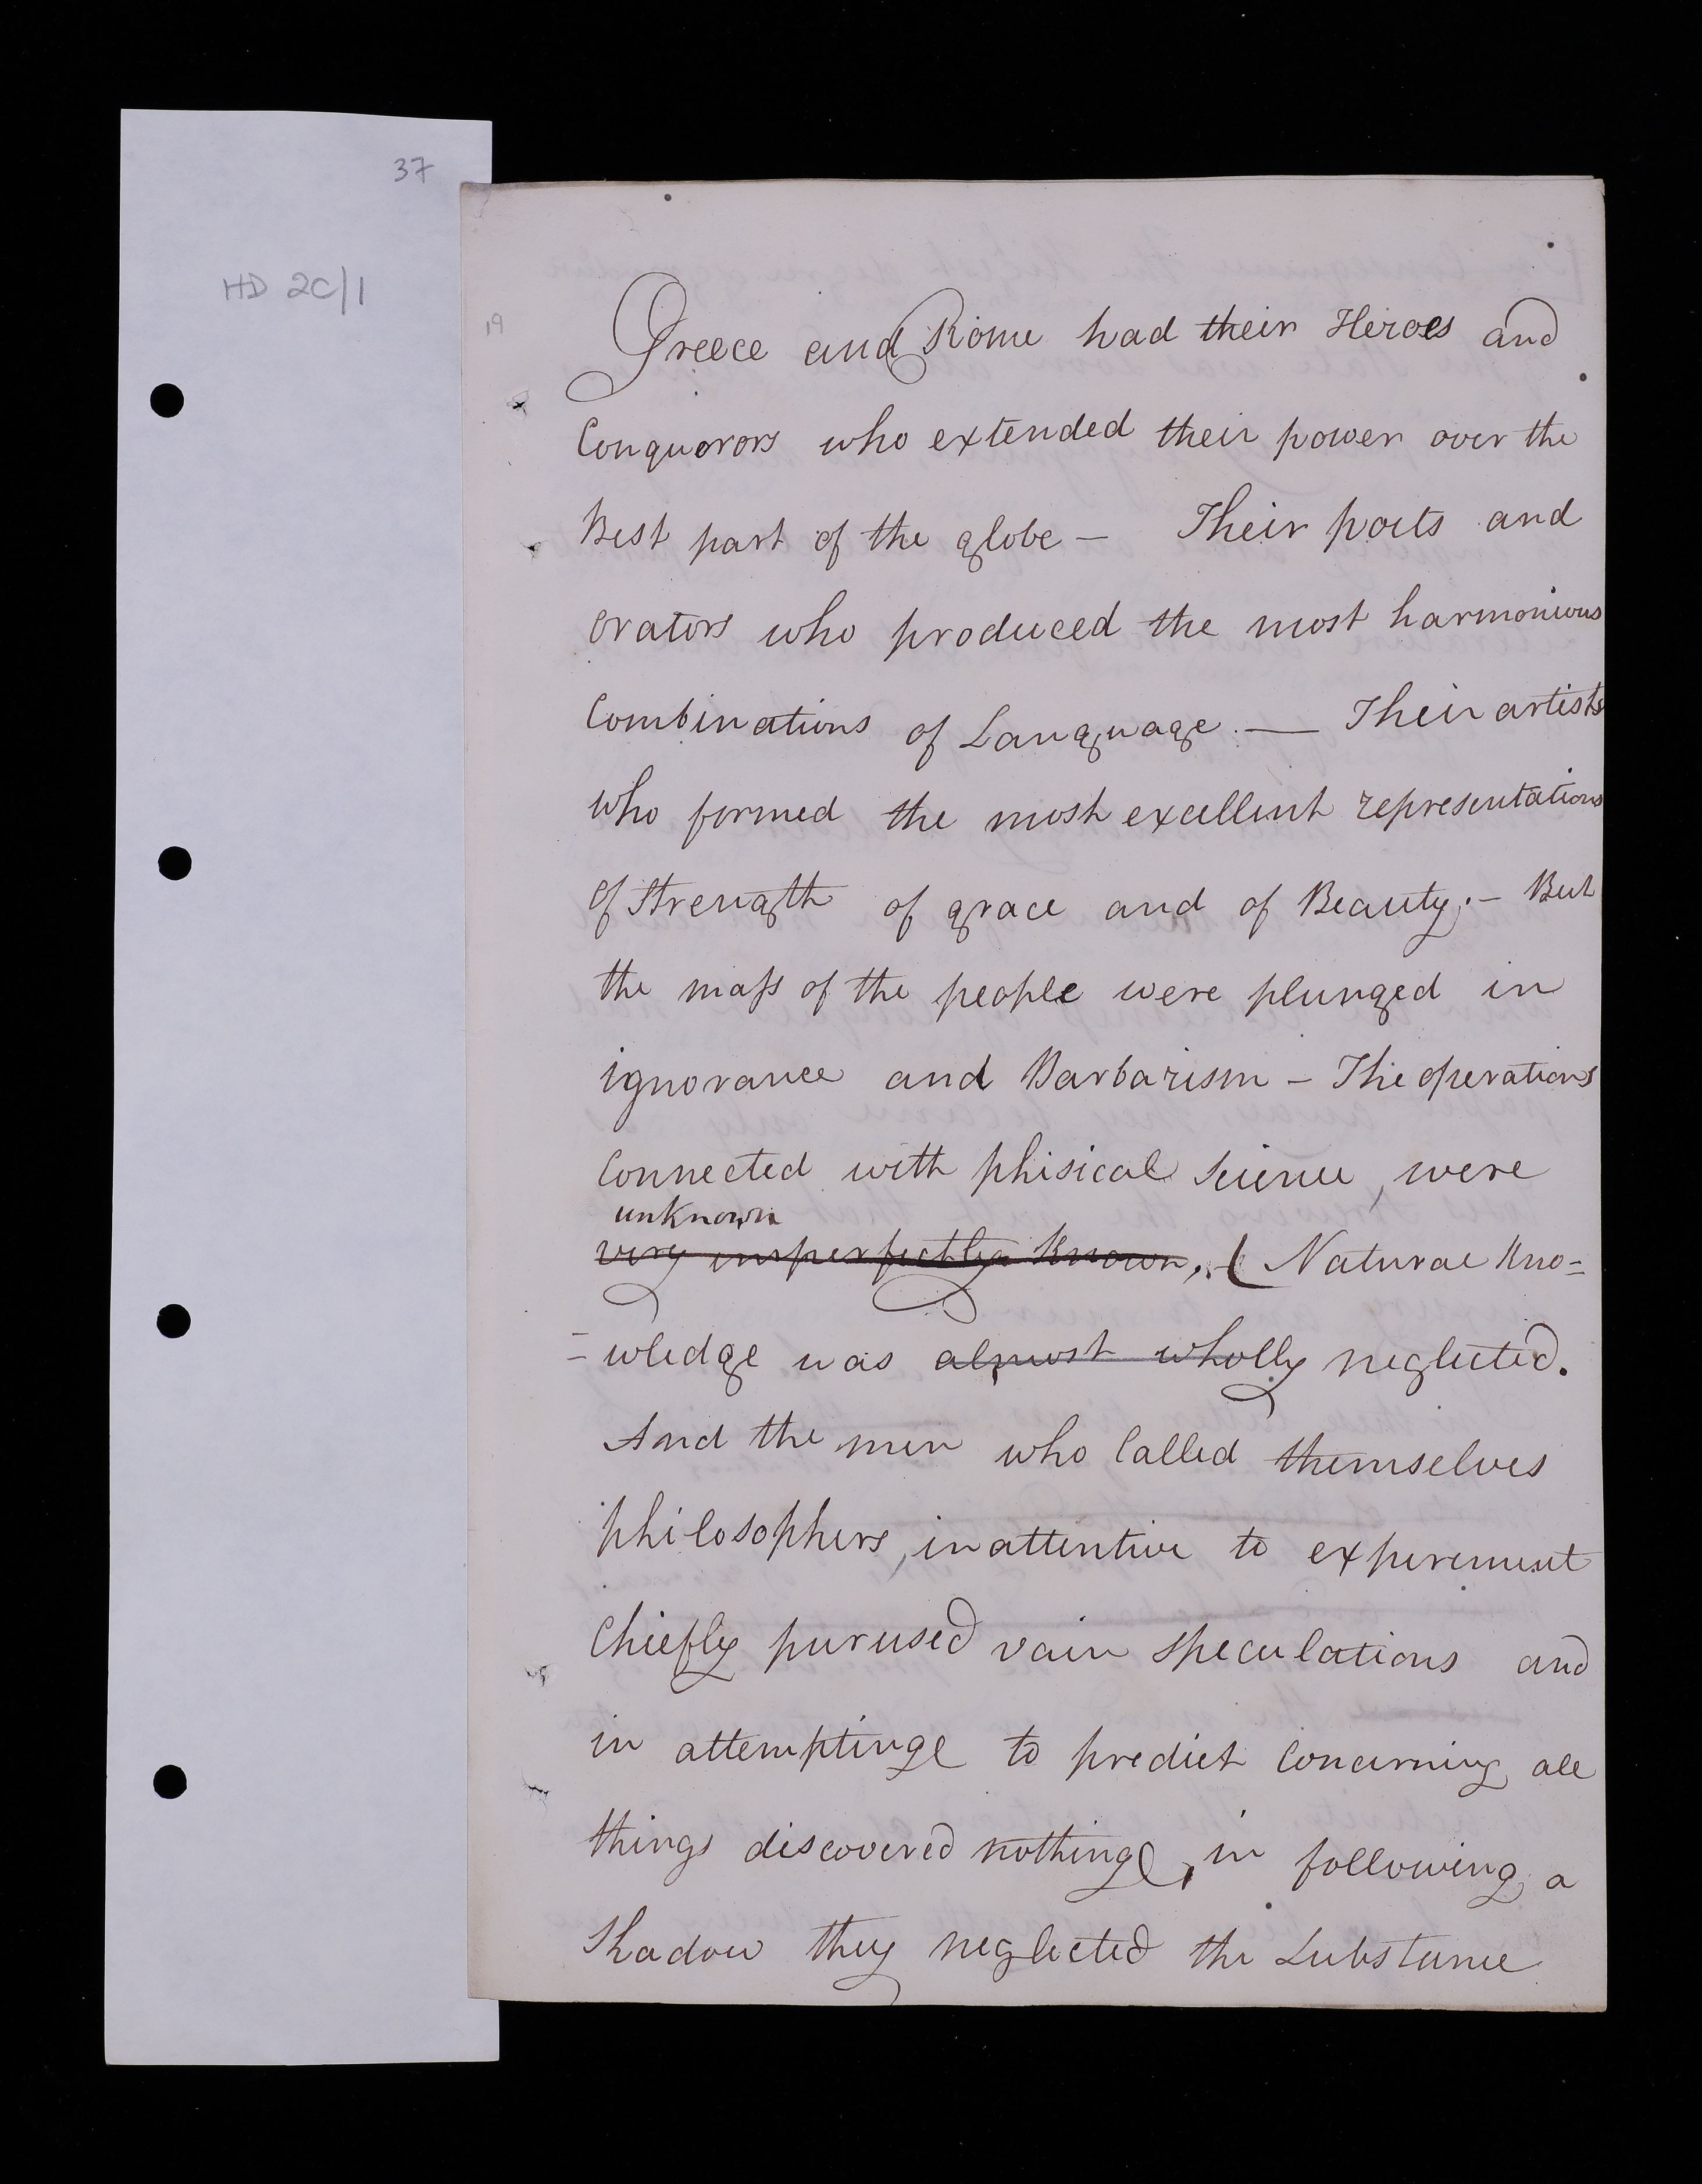 37
HD 2C/1
19
Greece and Rome had their Heroes and
Conquerors who extended their power over the
Best part of the globe — Their poets and
orators who produced the most harmonious
Combinations of Language. — Their artists
who formed the most excellent representations
of Strength of grace and of Beauty. — But
the maſs of the people were plunged in
ignorance and Barbarism — The operations
Connected with phisical Science, were
unknown
very imperfectly Known, ( Natural Kno=
=wledge was almost wholly neglected.
And the men who Called themselves
philosophers, inattentive to experement
Chiefly purused vain speculations and
in attempting to predict Concerning all
things discovered nothing, in following a
Shadow they neglected the Substance